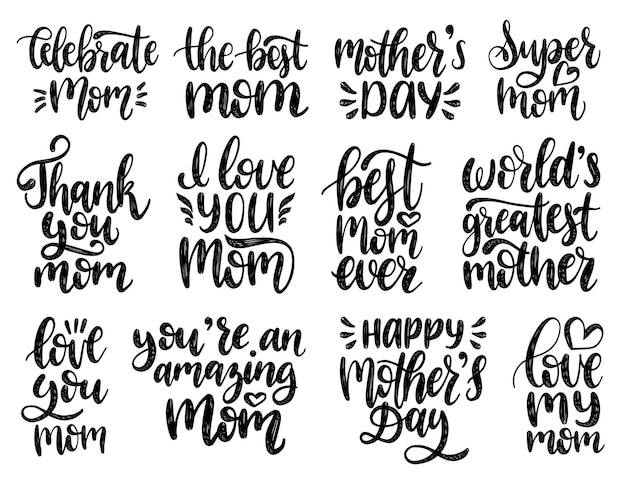 Celebrate
Mom
the best
mom
mother's
DAY
Super
mom
Thank
you
mom
I love
YOU
Mom
best
Mom
ever
world's
greatest
mother
love
you
mom
you're an
amazing
Mom
HAPPY
Mother's
Day
love
MY
mom